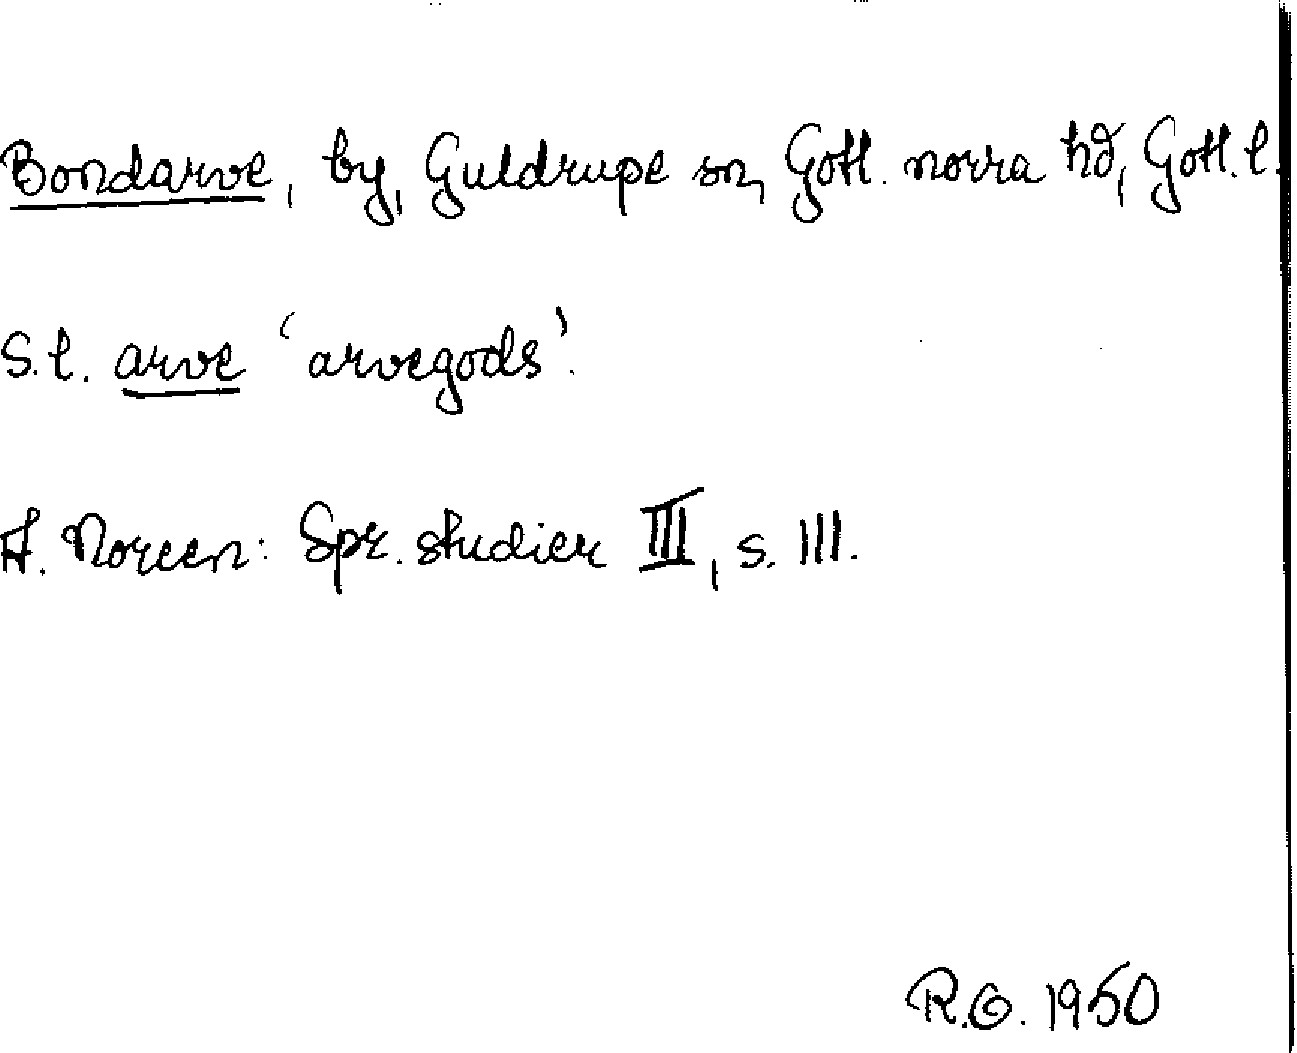 Bondarve, by, Guldrupe sn, Gotl. norra hd, Gotl. l.
S.l. arve 'arvegods'.
A. Noreen: Spr. studier III, s. 111.
R.G. 1950